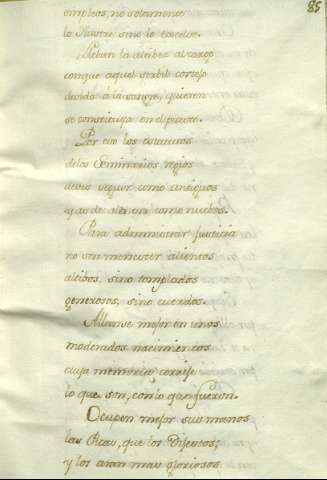 85
empleas, no solamente
lo ilustre sino lo excelso.
la altibez al cargo
conque aquel serbil cortejo
devido á la sangre, quieren
se constituya en el puesto.
Por eso los estatutos
delos Seminarios regios
deveis seguir como antiguos
y como nuebos.
Para administrar justicia
no son menester alientos
altibos, sino templados
generosos, sino cuerdos.
Allanse mejor en unos
moderados nacimientos
cuya memoria corrije
lo que son, con lo que fueron.
Ocupen mejor sus manos
las Picas, que los Dijestos,
y los aran mas gloriosos